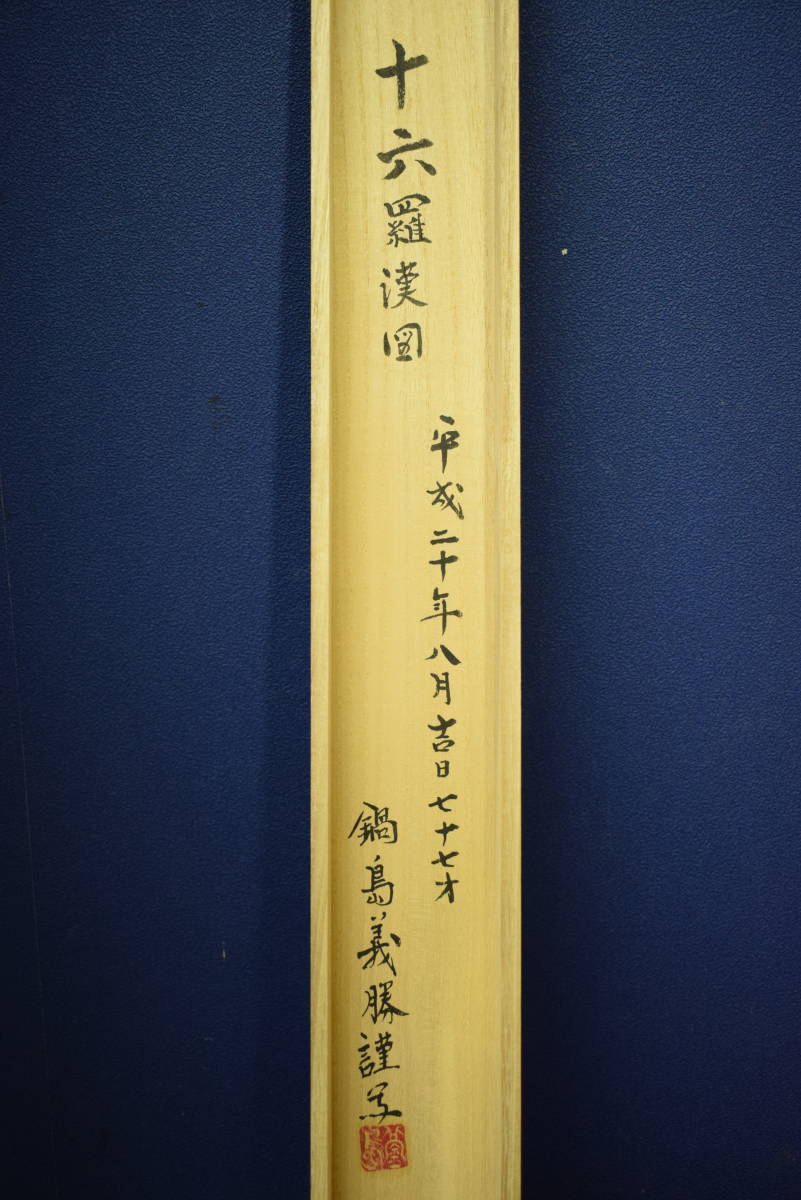 十六羅漢図
平成二十年八月吉日七十七才
鍋島義勝謹写